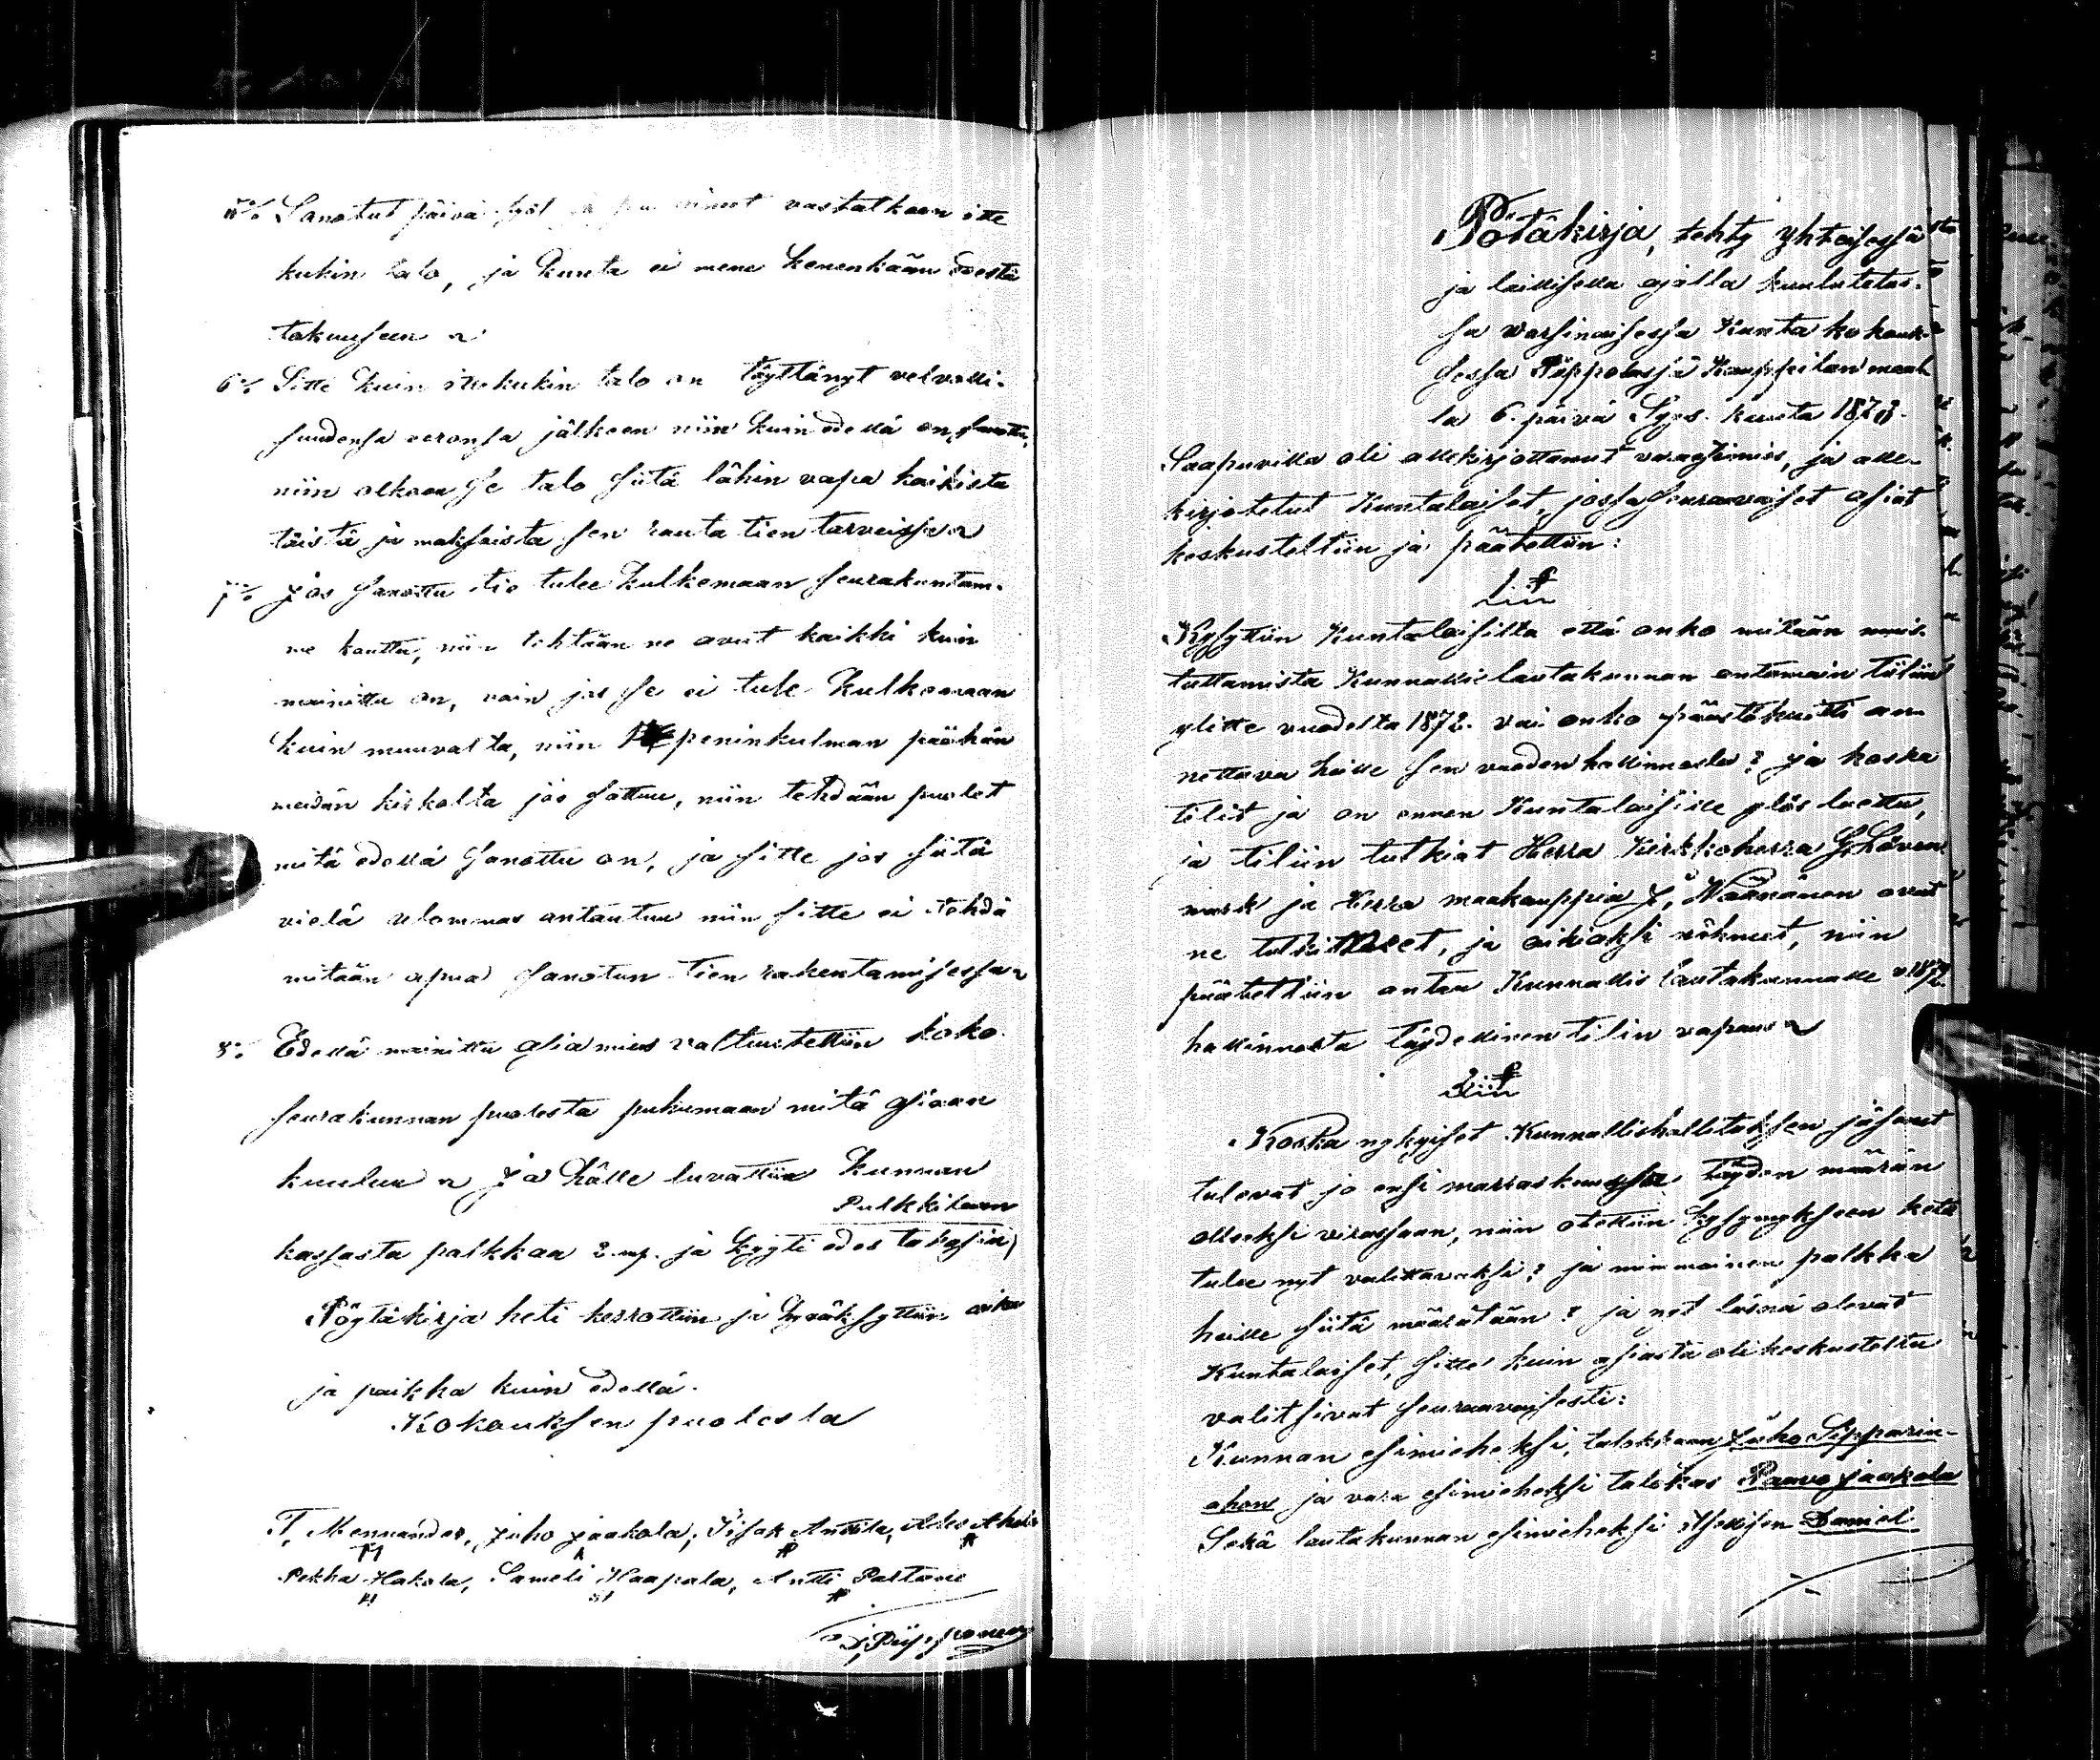 5:o Sanotut päivä työt ja vastatkoon itte
kukin talo, ja Kunta ei mene kenenkään edestä
takuuseen
6:o Sitte kuin ittekukin talo on täyttänyt velvolli-
suudensa veronsa jälkeen niin kuin edellä on sanottu,
niin olkoon se talo siitä lähin vapa kaikista
töistä ja maksuista sen rauta tien tarveissa
7:o Jos sanottu tie tulee kulkemaan seurakuntam-
me kautta, niin tehtään ne avut kaikki kuin
mainittu on, vain jos se ei tule kulkemaan
kuin muuvalta, niin peninkulman päähän
meidän kirkolta jos sattuu, niin tehdään puolet
mitä edellä sanottu on, ja sitte jos siitä
vielä ulommas antautuu niin sitte ei tehdä
mitään apua sanotun tien rakentamisessa
8:o Edellä mainittu asiamies valtuutettiin koko
seurakunnan puolesta puhumaan mitä asiaan
kuuluu Ja hälle luvattiin kunnan
Pulkkilaan
kassasta palkkaa 2 mp. ja kyyti edes takasin,
Pöytäkirja heti kerrottiin ja hyväksyttiin aika
ja paikka kuin edellä.
Kokouksen puolesta
T. Mennander, Juho Jaakola, Iisak Anttila,
Pekka Hakola, Sameli Haapala, Antti
J. Piipponen
Pötäkirja, tehty yhteisessä
ja laillisella ajalla kuulutetus-
sa varsinaisessa Kunta kokouk-
sessa Piippolassa Kauppilan maal-
la 6. päivä Syys kuuta 1873.
Saapuvilla oli allekirjottanut varaesimies, ja alle-
kirjotetut Kuntalaiset, jossa seuraavaiset asiat
keskusteltiin ja päätettiin:
1:in §
Kysyttiin Kuntalaisilta että onko mitään muis-
tuttamista Kunnallislautakunnan antamain tiliin
ylitte vuodelta 1872. vai onko päästökuitti an-
nettava heille sen vuoden hallinnosta? ja koska
tilit ja on ennen Kuntalaisille ylös luettu,
ja tiliin tutkiat Herra Kirkkoherra G. Löven-
mark ja Herra maakauppia J. Väänänen ovat
ne tutkineet, ja oikiaksi nähneet, niin
päätettiin antaa Kunnallis lautakunnalle v. 1872
hallinnosta täydellinen tilin vapaus
2:in §
Koska nykyiset Kunnallishallituksen jäsenet
tulevat jo ensi marraskuussa täyden määrän
olleeksi virassaan, niin otettiin kysymykseen ketä
tulee nyt valittavaksi? ja mimmoinen palkka
heille siitä määrätään? ja nyt läsnä olevat
Kuntalaiset, sitte kuin asiasta oli keskusteltu
valitsivat seuraavaisesti:
Kunnan esimieheksi, talokkaan Juho Sipparin-
ahon ja vara esimieheksi talokas Paavo Jaakola
Sekä lautakunnan esimieheksi itsellisen Daniel